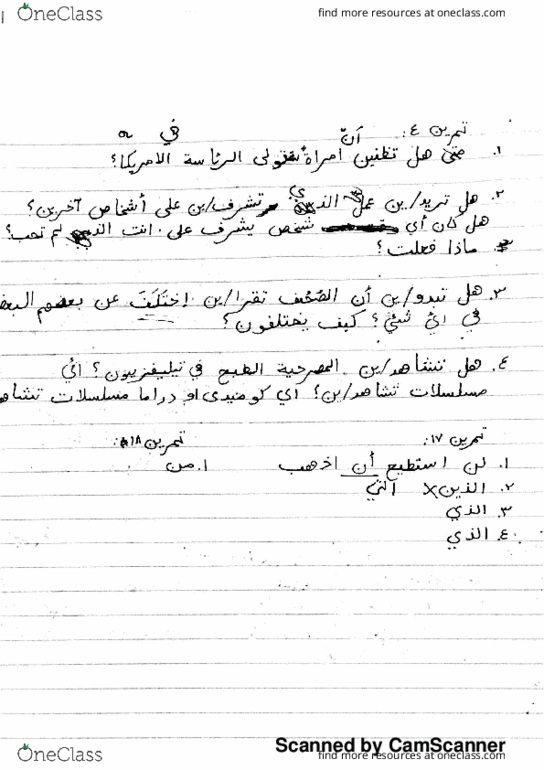 OneClass
find more resources at oneclass.com
تمرين ٤: أنّ في
١. متى هل تظنين امراة ستولى الرئاسة الامريكا؟
٢. هل تريد/ين عمل الذي تشرف/ين على أشخاص آخرين؟
هل كان أي شخص يشرف على انت الذي لم تحب؟
ماذا فعلت؟
٣. هل تبدو/ين أن الصُحُف تقرا/ين اِختَلَفَ عن بعضهم البعض
في ائ شئ؟ كيف يختلفون؟
٤. هل تشاهد/ين المصرحية الطبح في تيليفزيون؟ ائ
مسلسلات تشاهد/ين؟ اي كوميدى او دراما مسلسلات تشاهد
تمرين ١٧: تمرين ١٨:
١. لن استطيع أن اذهب ١. من
٢. الذين X التي
٣. الذي
٤. الذي
Scanned by CamScanner
OneClass
find more resources at oneclass.com